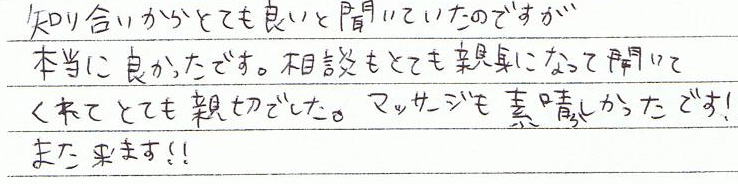 知り合いからとても良いと聞いていたのですが
本当に良かったです。相談もとても親身になって聞いて
くれてとても親切でした。マッサージも素晴しかったです!
また来ます!!